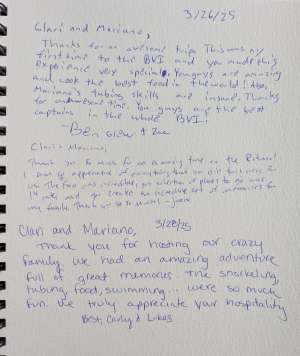 3/26/25
Clari and Mariano,
Thanks for an awesome trip. This was my
first time to the BVI and you made this
experience very special. You guys are amazing
and cook the best food in the world! Also,
Mariano's tubing skills are insane. Thanks
for an awesome time. You guys are the best
captains in the whole BVI!
-Ben
Clari + Mariano,
Thank you so much for an amazing time on the
I am so appreciative of everything that you did
us. The food was incredible,
and you
family. Thank you so so much!
3/28/25
Clari and Mariano,
Thank you for hosting our crazy
family. We had an amazing adventure
full of great memories. The snorkeling,
tubing, food, swimming... were so much
fun. We truly appreciate your hospitality
Best, Carly & Lukas